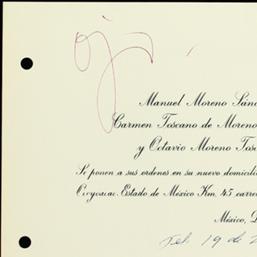 Manuel Moreno Sánc
Carmen Toscano de Moreno
y Octavio Moreno Tosc
Se ponen a sus ordenes en su nuevo domicilio
Ocoyoacac Estado de México Km. 45 carre
México, D
Feb 19 de 2